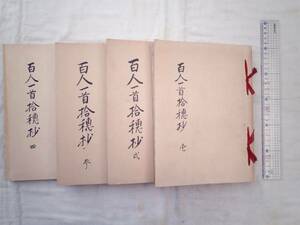 百人一首拾穗抄 壱
百人一首拾穗抄 弐
百人一首拾穗抄 参
百人一首拾穗抄 四